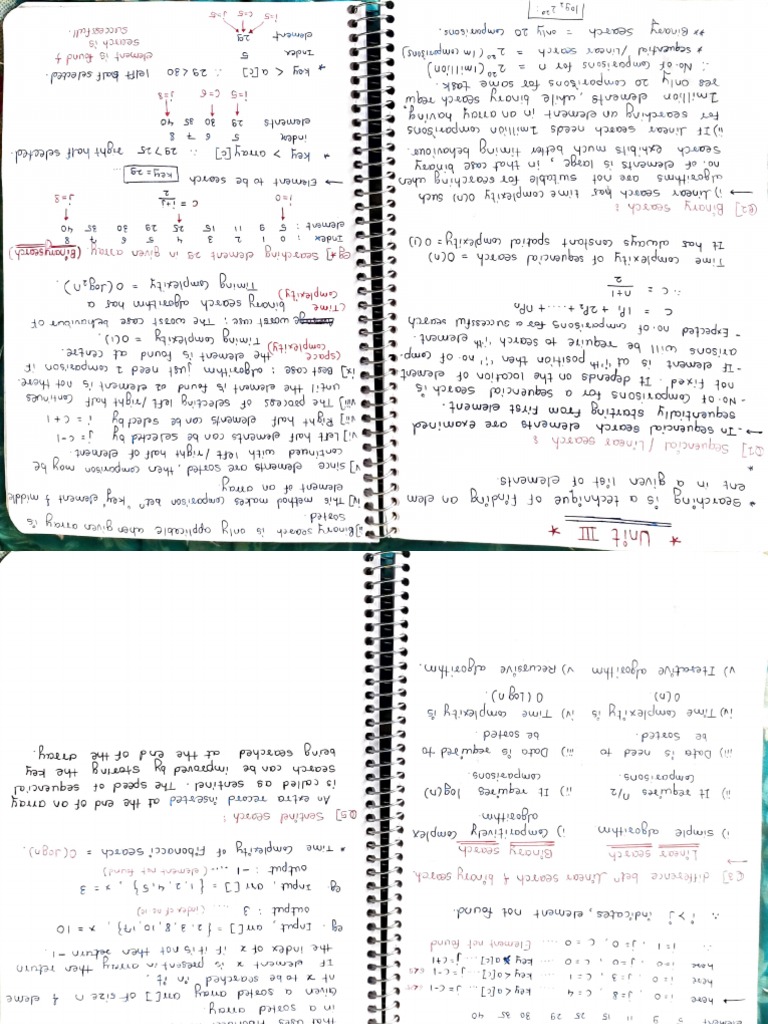 element 5 9 11 15 25 29 30 35 40
here i=0, j=8, c=4 ..... key<a[c] ... j=c-1
here i=0, j=3, c=1 ..... key<a[c] ... j=c-1
here i=0, j=0, c=0 ..... key a[c] ... i=c+1
i=1, j=0, c=0 ..... Element not found
∴ i > j indicates, element not found.
Q3] difference betn Linear search & binary search.
Linear search Binary search
i) simple algorithm i) Comparitively complex
algorithm
ii) It requires n/2 ii) It requires log(n)
comparisons comparisons.
iii) Data is need to iii) Data is required to
be sorted. be sorted
iv) Time complexity is iv) Time complexity is
O(n) O(logn).
v) Iterative algorithm v) Recursive algorithm.
in a sorted array.
Given a sorted array arr[] of size n & eleme
nt x to be searched in it.
If element x is present in array then return
the index of x if it is not then return -1.
eg. Input, arr[] = {2,3,8,10,17}, x = 10
output : 3 ..... (index of 10)
eg. Input, arr[] = {1,2,4,5}, x = 3
output : -1 ..... (element not found)
* Time complexity of Fibonacci search = O(logn).
Q5] Sentinel search :
An extra record inserted at the end of an array
is called as sentinel. The speed of sequencial
search can be improved by storing the key
being searched at the end of the array.
* Unit III *
* Searching is a technique of finding an elem
ent in a given list of elements
Q1] Sequencial / Linear search :
→ - In sequencial search elements are examined
sequentially starting from first element.
- No. of comparisons for a sequencial search is
not fixed. It depends on the location of element
- If element is at "ith" position then "i" no. of comp-
arisons will be require to search ith element.
- Expected no. of comparisons for successful search
C = 1P1 + 2P2 + ..... + nPn
∴ C = n+1
2
Time complexity of sequencial search = O(n)
It has always constant spatial complexity = O(1)
Q2] Binary search :
→ i) Linear search has time complexity O(n) such
algorithms are not suitable for searching when
no. of elements is large, in that case binary
search exhibits much better timing behaviour.
ii) If linear search needs 1million comparisons
for searching an element in an array having,
1million elements, while binary search requ
res only 20 comparisons for some task.
∴ No. of comparisons for n = 2^20 (1million)
* sequential / Linear search = 2^20 (1m comparisons)
** Binary search = only 20 comparisons.
log2 2^20 :
iii] Binary search is only applicable when given array is
sorted.
iv] This method makes comparison betn "key" element & middle
element of an array
v] since elements are sorted, then comparison may be
continued with left/right half of element.
vi] Left half elements can be selected by j = c-1
vii] Right half elements can be select by i = c+1
viii] The process of selecting left/right half continues
until the element is found or element is not there.
ix] Best case : algorithm just need 1 comparison if
(space complexity) the element is found at centre.
Timing complexity = O(1).
worst case : The worst case behaviour of
(Time complexity) binary search algorithm has a
Timing complexity = O(log2n).
eg*] Searching element 29 in given array (Binarysearch)
Index : 0 1 2 3 4 5 6 7 8
element : 5 9 11 15 25 29 30 35 40
i=0 c = i+j j=8
2
→ Element to be search key = 29 ...
* key > array[c] ∴ 29>25 right half selected.
index 5 6 7 8
elements 29 30 35 40
i=5 c=6 j=8
* key < a[c] ∴ 29<30 left half selected.
Index 5
element 29
i=5 c=5 j=5
element is found &
search is
successfull.